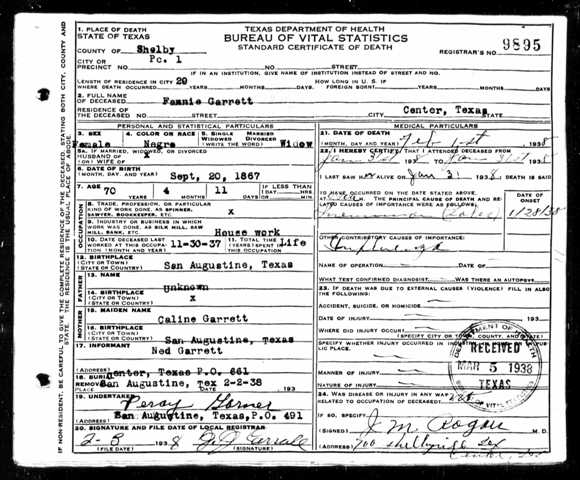 1. PLACE OF DEATH
STATE OF TEXAS
TEXAS DEPARTMENT OF HEALTH
BUREAU OF VITAL STATISTICS
STANDARD CERTIFICATE OF DEATH
COUNTY OF Shelby
REGISTRAR'S NO. 9895
CITY OR
PRECINCT NO. Pc. 1 NO. STREET
IF IN AN INSTITUTION, GIVE NAME OF INSTITUTION INSTEAD OF STREET AND NO.
LENGTH OF RESIDENCE IN CITY 20 HOW LONG IN U. S. IF
WHERE DEATH OCCURRED YEARS MONTHS DAYS FOREIGN BORN? YEARS MONTHS DAYS
2. FULL NAME
OF DECEASED Fannie Garrett
RESIDENCE OF
THE DECEASED NO. STREET CITY Center, Texas STATE
PERSONAL AND STATISTICAL PARTICULARS
3. SEX 4. COLOR OR RACE 5. SINGLE MARRIED WIDOWED DIVORCED (WRITE THE WORD)
Female Negro Widow
5A. IF MARRIED, WIDOWED, OR DIVORCED
HUSBAND OF X
(OR) WIFE OF
6. DATE OF BIRTH
(MONTH, DAY, AND YEAR) Sept, 20, 1867
7. AGE YEARS MONTHS DAYS IF LESS THAN 1 DAY
70 4 11 HRS. MIN.
OCCUPATION
8. TRADE, PROFESSION, OR PARTICULAR
KIND OF WORK DONE, AS SPINNER,
SAWYER, BOOKKEEPER, ETC. X
9. INDUSTRY OR BUSINESS IN WHICH
WORK WAS DONE, AS SILK MILL, SAW
MILL, BANK, ETC. House work
10. DATE DECEASED LAST
WORKED AT THIS OCCUPATION 11-30-37 11. TOTAL TIME (YEARS) SPENT IN THIS OCCUPATION Life
12. BIRTHPLACE
(CITY OR TOWN)
(STATE OR COUNTRY) San Augustine, Texas
FATHER
13. NAME Unknown
14. BIRTHPLACE
(CITY OR TOWN)
(STATE OR COUNTRY) X
MOTHER
15. MAIDEN NAME Caline Garrett
16. BIRTHPLACE
(CITY OR TOWN)
(STATE OR COUNTRY) San Augustine, Texas
17. INFORMANT Ned Garrett
Center, Texas P.O. 661
18. BURIAL
REMOVAL San Augustine, Tex 2-2-38 193
19. UNDERTAKER Percy Garner
San Augustine, Texas, P.O. 491
20. SIGNATURE AND FILE DATE OF LOCAL REGISTRAR
2-3 8
(FILE DATE) (SIGNATURE)
MEDICAL PARTICULARS
21. DATE OF DEATH
(MONTH, DAY, AND YEAR) 1st 193
22. I HEREBY CERTIFY THAT I ATTENDED DECEASED FROM
Jan 31st 193 TO Jan 31st 193
I LAST SAW ALIVE ON Jan 31 1938, DEATH IS SAID
TO HAVE OCCURRED ON THE DATE STATED ABOVE,
AT M. THE PRINCIPAL CAUSE OF DEATH AND RELATED CAUSES OF IMPORTANCE WERE AS FOLLOWS:
DATE OF
ONSET
(Lobar) 1/28/38
OTHER CONTRIBUTORY CAUSES OF IMPORTANCE:
NAME OF OPERATION DATE OF
WHAT TEST CONFIRMED DIAGNOSIS? WAS THERE AN AUTOPSY?
23. IF DEATH WAS DUE TO EXTERNAL CAUSES (VIOLENCE) FILL IN ALSO
THE FOLLOWING:
ACCIDENT, SUICIDE, OR HOMICIDE
DATE OF INJURY 193
WHERE DID INJURY OCCUR?
(SPECIFY CITY OR TOWN, COUNTY, AND STATE)
SPECIFY WHETHER INJURY OCCURRED IN
PLACE.
MANNER OF INJURY
NATURE OF INJURY
DEPARTMENT OF HEALTH
RECEIVED
MAR 5 1938
TEXAS
24. WAS DISEASE OR INJURY IN ANY WAY
RELATED TO OCCUPATION OF DECEASED?
IF SO, SPECIFY
(SIGNED) J. M. Rogers M. D.
(ADDRESS) 700 Shelbyville